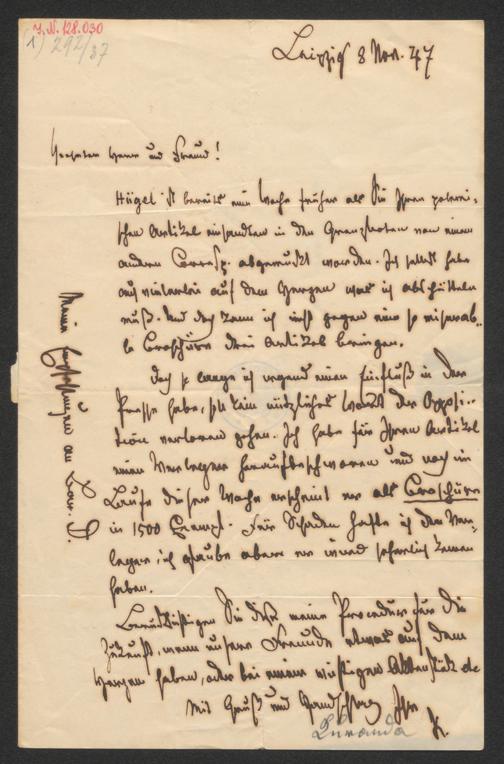 J.N. 128.030
(1) 292/37
Leipzig 8 Nov. 47
Geehrter Herr und Freund!
Hügel ist bereits eine Woche früher als Sie Ihren polemi-
schen Artikel einsandten in den Grenzboten von einem
andern Corresp. abgemuckt worden. Ich selbst habe
auf dem Herzen was ich abschütteln
muß. Und doch kann ich nicht gegen eine so miserab-
le Broschüre drei Artikel bringen.
Doch so lange ich irgend einen Einfluß in der
Presse habe, soll kein nützliches Wort der Opposi-
tion verloren gehen. Ich habe für Ihren Artikel
einen Verleger heraufbeschworen und noch im
Laufe dieser Woche erscheint er als Broschüre
in 1500 Exempl. Für Schaden hafte ich dem Ver-
leger, ich glaube aber er wird keinen
haben.
Berücksichtigen Sie diese meine Procedur für die
Zukunft, wenn unsere Freunde etwas auf dem
Herzen haben, oder bei einem wichtigen Aktenstück etc
Mit Gruß und Handschlag Ihr
K.
Kuranda
Meine Empfehlungen an Bar. D.